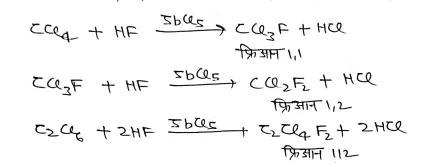 CCl4 + HF SbCl5 → CCl3F + HCl
फ्रिआन 1,1
CCl3F + HF SbCl5 → CCl2F2 + HCl
फ्रिआन 1,2
C2Cl6 + 2HF SbCl5 → C2Cl4F2 + 2HCl
फ्रिआन 112